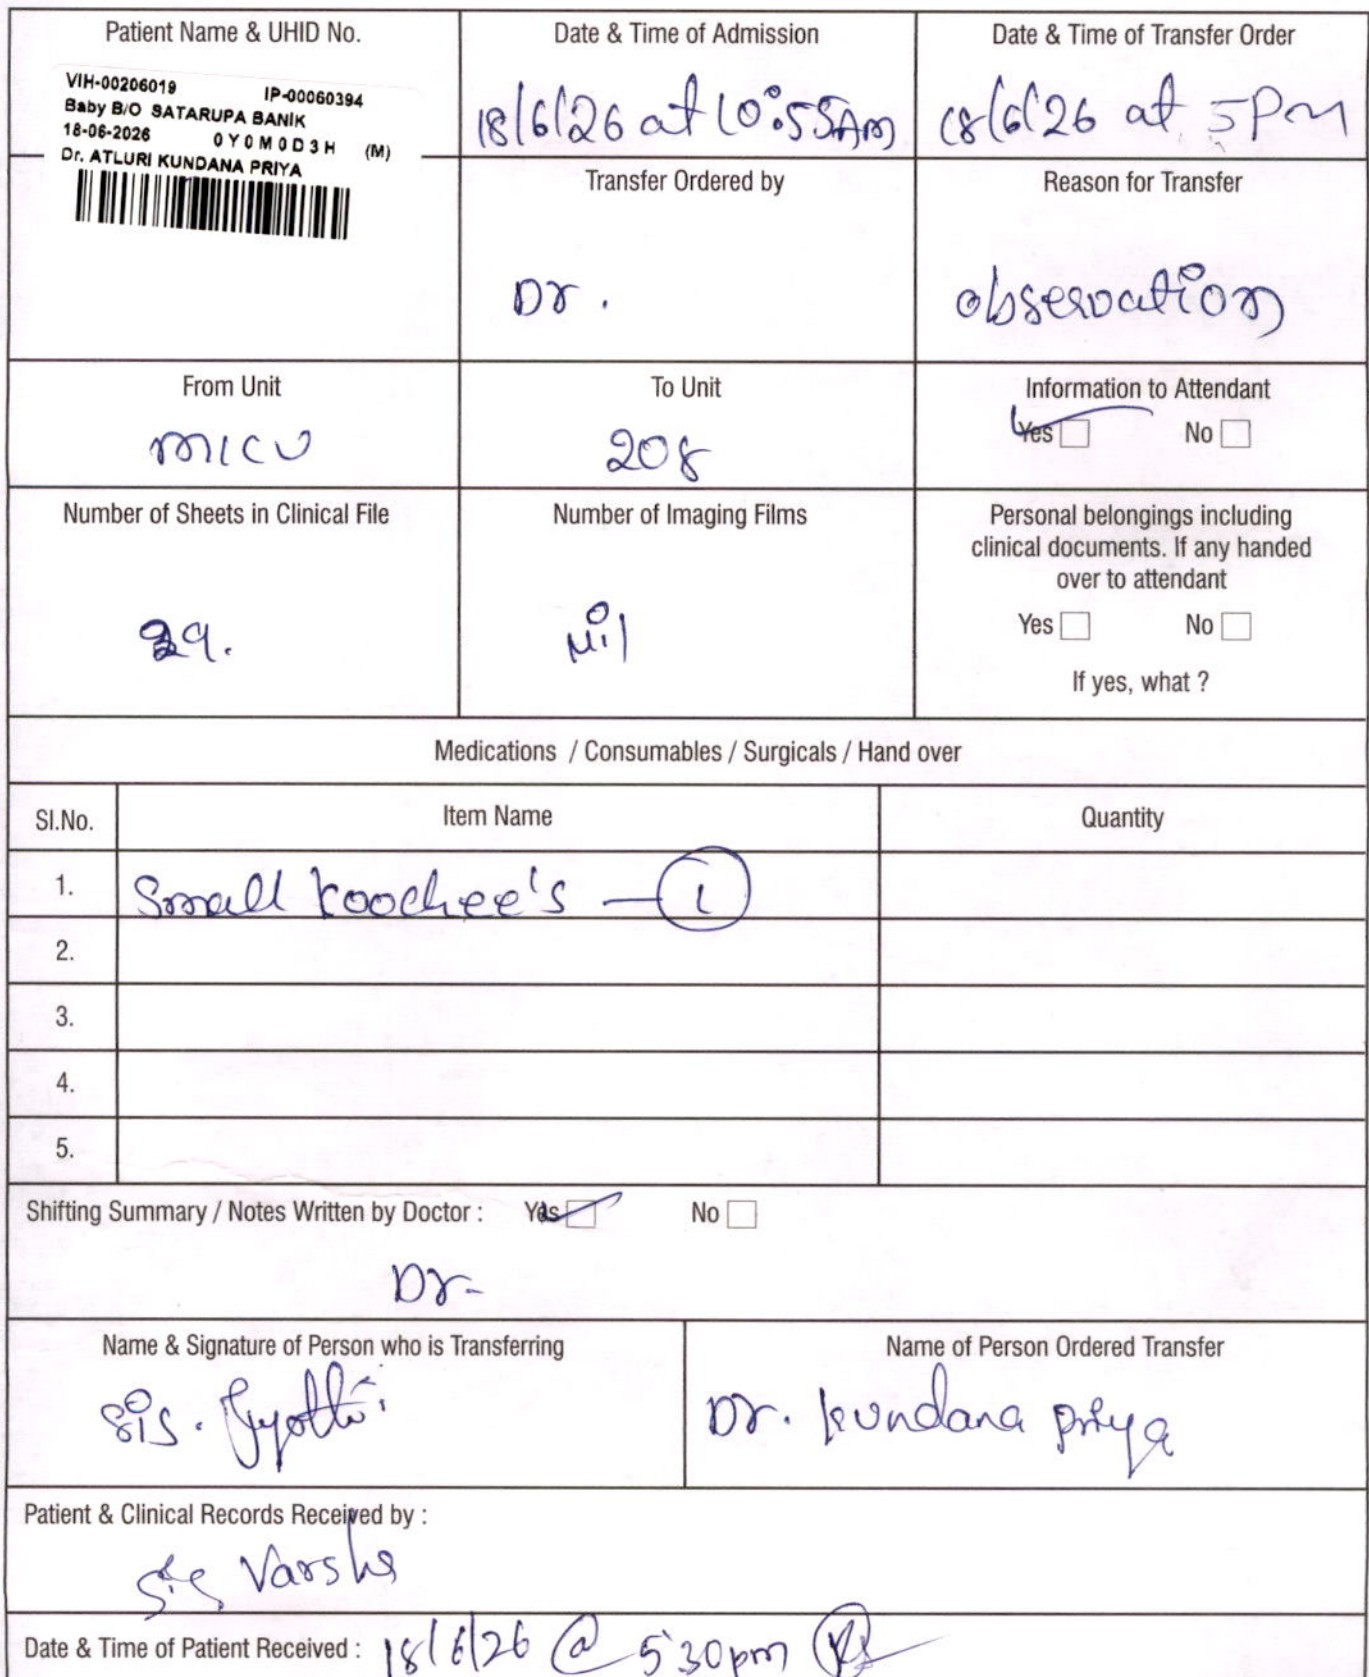 Patient Name & UHID No.
VIH-00206019 IP-00060394
Baby B/O SATARUPA BANIK
18-06-2026 0Y0M0D3H (M)
Dr. ATLURI KUNDANA PRIYA
Date & Time of Admission
18/6/26 at 10:55AM
Date & Time of Transfer Order
18/6/26 at 5PM
Transfer Ordered by
Dr.
Reason for Transfer
observation
From Unit
MICU
To Unit
208
Information to Attendant
Yes No
Number of Sheets in Clinical File
29.
Number of Imaging Films
Nil
Personal belongings including
clinical documents. If any handed
over to attendant
Yes No
If yes, what ?
Medications / Consumables / Surgicals / Hand over
SI.No. Item Name Quantity
1. Small koochee's – 1
2.
3.
4.
5.
Shifting Summary / Notes Written by Doctor : Yes No
Dr-
Name & Signature of Person who is Transferring
sis. Jyothi
Name of Person Ordered Transfer
Dr. kundana priya
Patient & Clinical Records Received by :
Sis Varsha
Date & Time of Patient Received : 18/6/26 @ 5:30pm